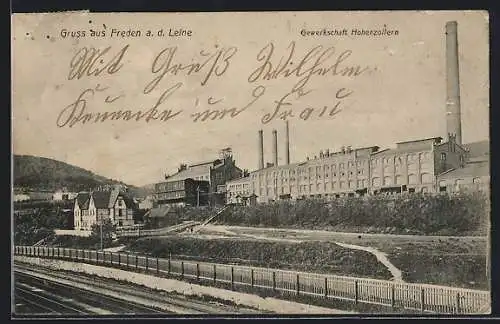 Gruss aus Freden a. d. Leine
Gewerkschaft Hohenzollern
Mit Gruß Wilhelm
Kennecke und Frau